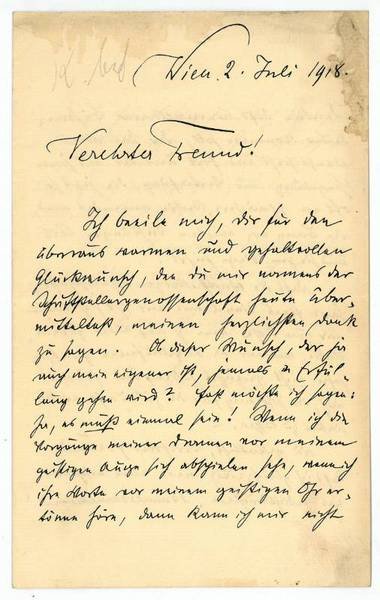 Wien 2. Juli 1918.
Verehrter Freund!
Ich beeile mich, dir für den
überaus warmen und gehaltvollen
Glückwunsch, den du mir namens der
Schriftstellergenossenschaft heute über-
mitteltest, meinen herzlichsten Dank
zu sagen. Ob dieser Wunsch, der ja
auch mein eigener ist, jemals in Erfül-
lung gehen wird? Fast möchte ich sagen:
Ja, es muß einmal sein! Wenn ich die
Vorgänge meiner Dramen vor meinem
geistigen Auge sich abspielen sehe, wenn ich
ihre Worte vor meinem geistigen Ohr er-
tönen höre, dann kann ich mir nicht